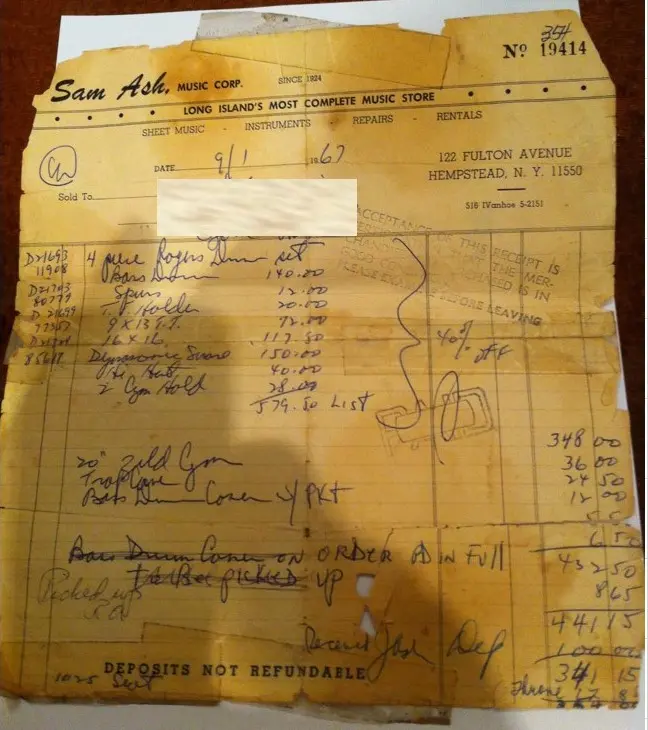 354
Nº 19414
Sam Ash, MUSIC CORP. SINCE 1924
LONG ISLAND'S MOST COMPLETE MUSIC STORE
SHEET MUSIC - INSTRUMENTS - REPAIRS - RENTALS
DATE 9/1 1967
122 FULTON AVENUE
HEMPSTEAD, N. Y. 11550
Sold To
516 IVanhoe 5-2151
ACCEPTANCE OF THIS RECEIPT IS
THAT THE MER-
CHANDISE PURCHASED IS IN
GOOD
PLEASE EXAMINE BEFORE LEAVING
D21693 4 piece Rogers Drum set
11908 Bass Drum 140.00
Spurs 12.00
80777 T.T. Holder 20.00
D 21699 9 x 13 T.T. 72.00
77357 16 x 16 117.50
Dynasonic Snare 150.00
85618 Hi Hat 40.00
2 Cym Hold 28.00
579.50 List
40% off
348 00
20" Zild Cym 36 00
Trap Case 24 50
Bass Drum Cover w/ Pkt 12 00
5 50
6 50
Bass Drum Cover ON ORDER PD IN Full
432 50
To Bee PICKED UP
8 65
Picked up
441 15
Dep 100 00
341 15
DEPOSITS NOT REFUNDABLE
Throne 17